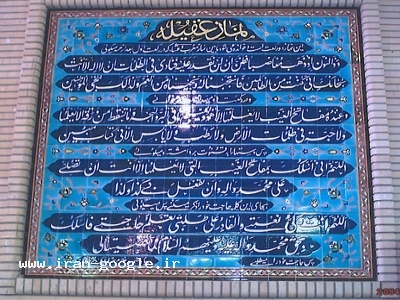 نماز غفیله
وذالنون اذ ذهب مغاضبا فظن ان لن نقدر علیه فنادی فی الظلمات ان لا اله الا انت
سبحانک انی کنت من الظالمین فاستجبنا له ونجیناه من الغم وکذلک ننجی المؤمنین
وعنده مفاتح الغیب لا یعلمها الا هو ویعلم ما فی البر والبحر وما تسقط من ورقة الا یعلمها
ولا حبة فی ظلمات الارض ولا رطب ولا یابس الا فی کتاب مبین
پس دستها را به قنوت برداشته و میگوئی
اللهم انی اسئلک بمفاتح الغیب التی لا یعلمها الا انت ان تصلی
علی محمد واله وان تفعل بی کذا وکذا
اللهم انت ولی نعمتی والقادر علی طلبتی تعلم حاجتی فاسئلک
بحق محمد واله علیه وعلیهم السلام لما قضیتها لی
www.iran-google.ir